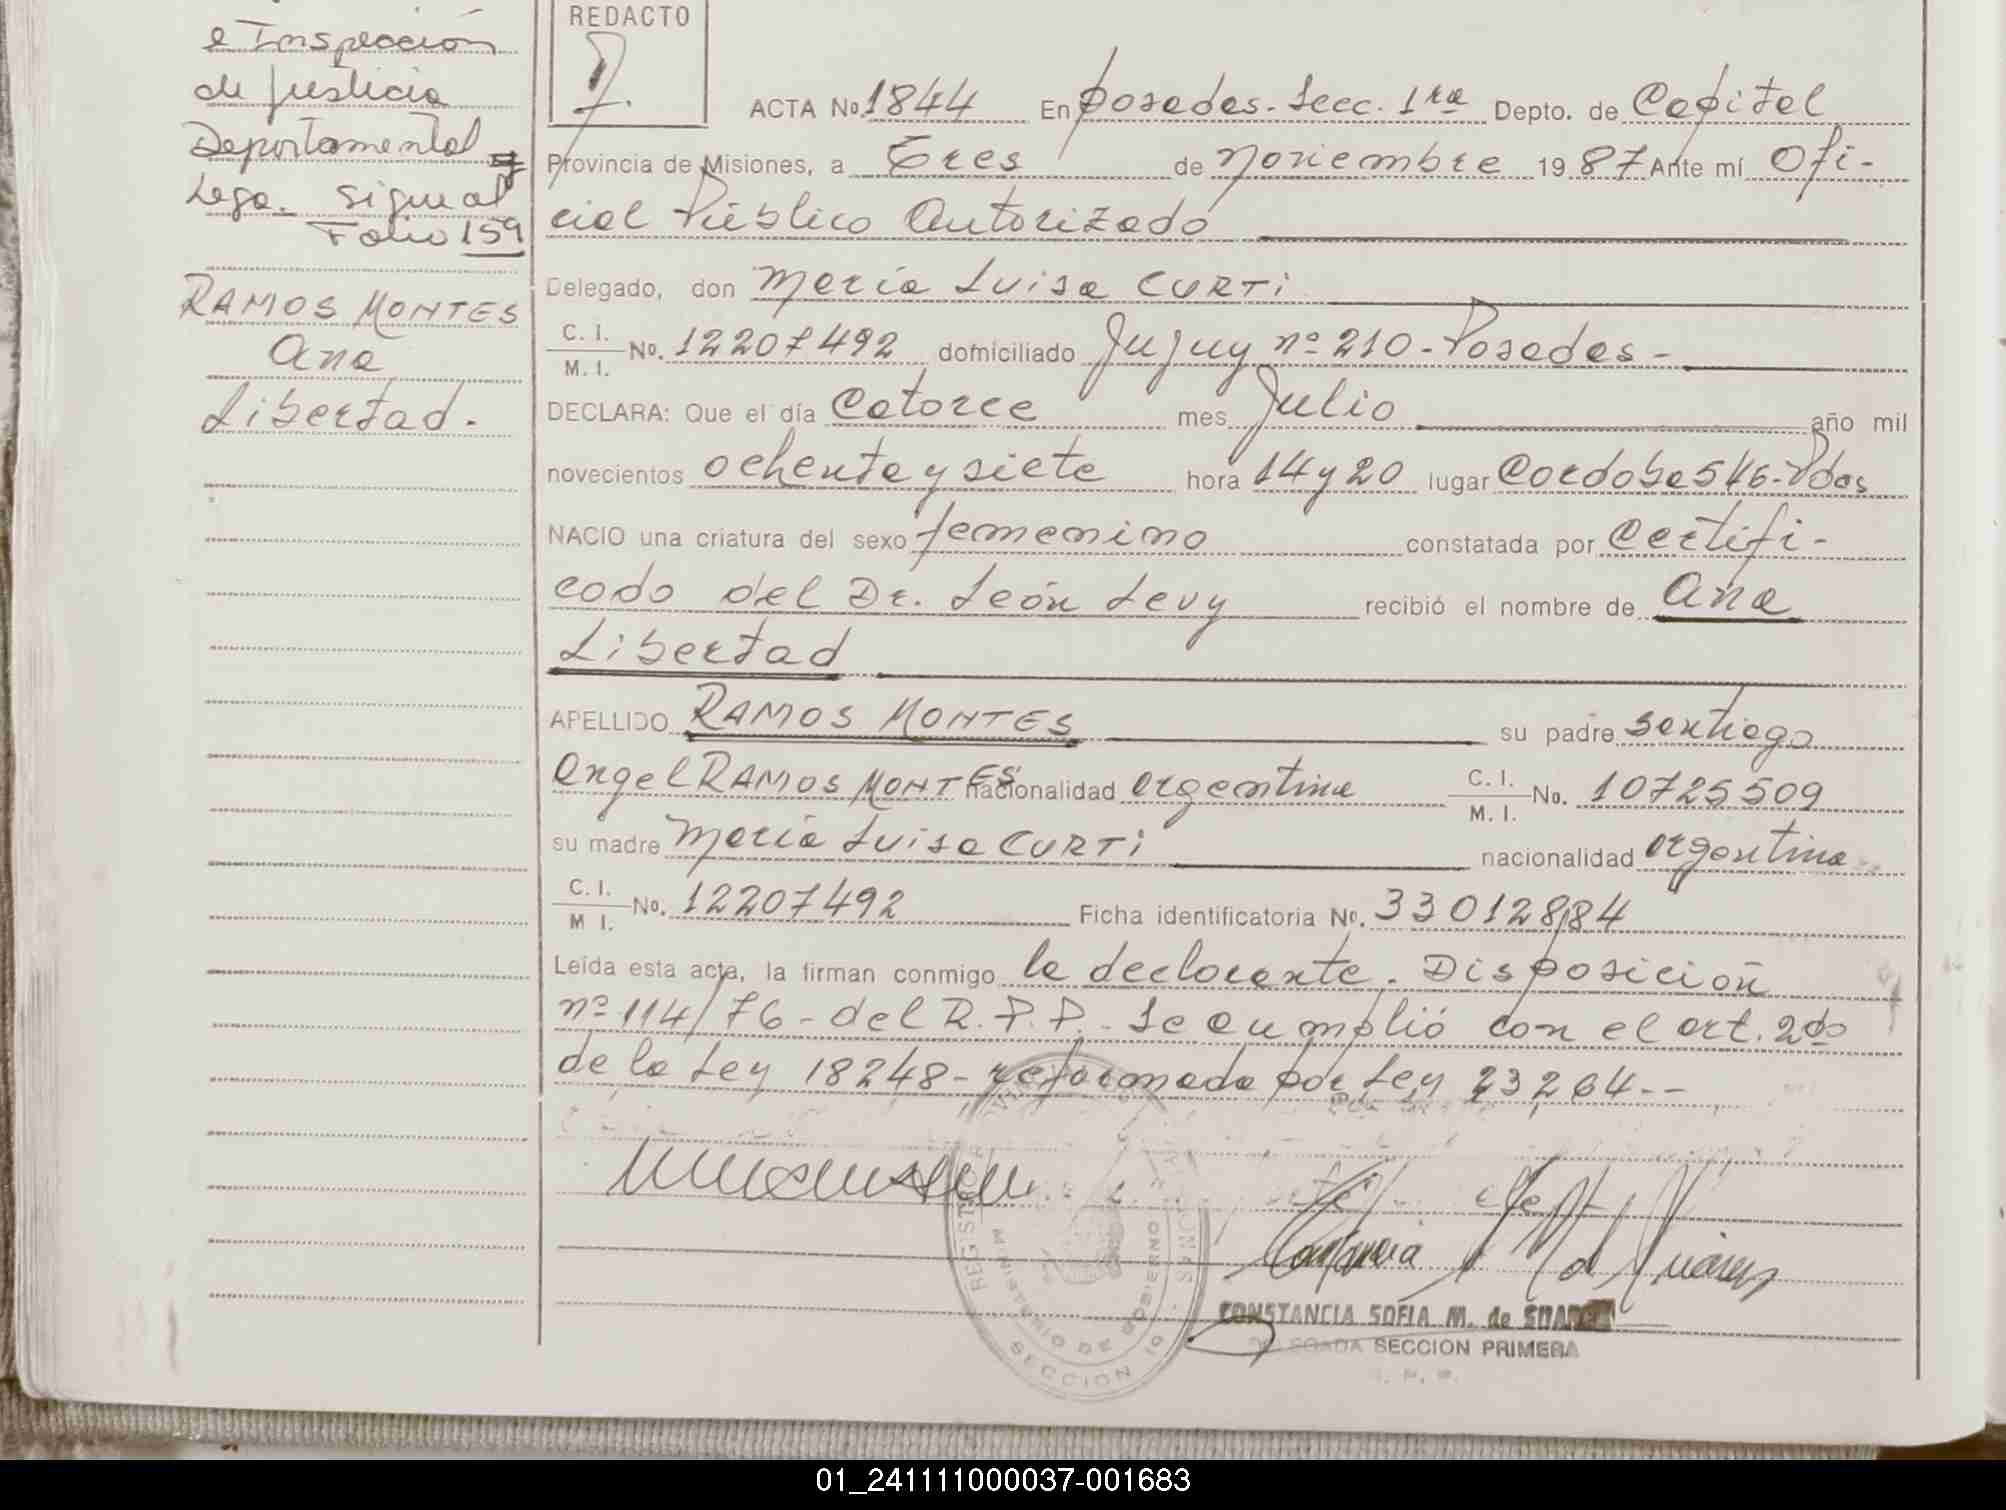 e Inspección
de Justicia
Departamental
Lega. sigue al
Folio 159
RAMOS MONTES
Ana
Libertad.
REDACTO
ACTA No. 1844 En posadas. Secc. 1ra Depto. de Capital
Provincia de Misiones, a Tres de noviembre 19 87 Ante mí Ofi-
cial Público Autorizado
Delegado, don María Luisa CURTI
C. I.
M. I. No. 12207492 domiciliado Jujuy nº 210 - Posadas -
DECLARA: Que el día Catorce mes Julio año mil
novecientos ochenta y siete hora 14 y 20 lugar Cordoba 546 - Pdas
NACIO una criatura del sexo femenino constatada por Certifi-
cado del Dr. León Levy recibió el nombre de Ana
Libertad
APELLIDO RAMOS MONTES su padre Santiago
Angel RAMOS MONTES nacionalidad argentina C. I.
M. I. No. 10725509
su madre María Luisa CURTI nacionalidad argentina
C. I.
M I. No. 12207492 Ficha identificatoria No. 33012884
Leída esta acta, la firman conmigo la declarante. Disposición
nº 114/76 - del R.P.P. Se cumplió con el art. 2do
de la Ley 18248 - reformada por Ley 23264 --
MINISTERIO DE GOBIERNO
SECCION 1a
CONSTANCIA SOFIA M. de
SECCION PRIMERA
01_241111000037-001683